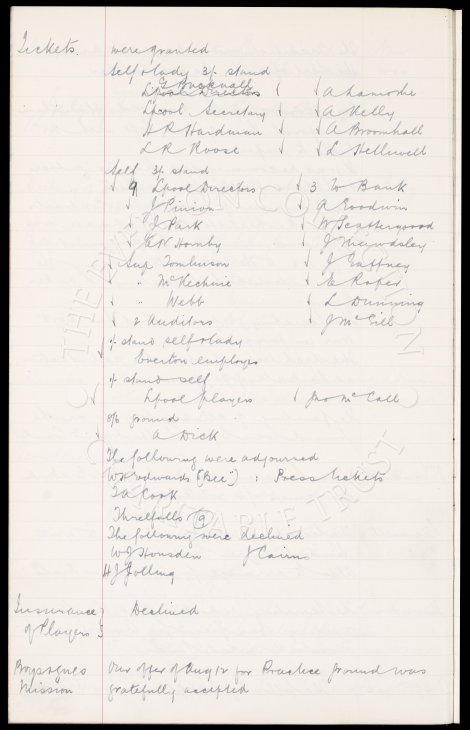 Tickets. were granted
Self & lady 3/- stand
G Bracknall
Lpool Directors A Lamoshe
Lpool Secretary A Kelly
J R Hardman A Broomhall
L R Roose L Helliwell
Self 3/- stand
9 Lpool Directors 3 W Bank
J Pinion A Goodwin
J Park W Scattergood
A N Hornby J Mawdsley
Sup Tomlinson J Gaffney
" McKechnie E Roper
" Webb L Dunning
2 Auditors J McGill
stand self & lady
Everton employes
stand self
Lpool players Jno McCall
6/6 ground
A Dick
The following were adjourned
W H Edwards ("Bee") : Press tickets
T A Cook
Threlfalls (9)
The following were declined
W J Housden J Cairns
H J Golling
Insurance of Players } Declined
Boys Agnes Our offer of Aug 12 for Practice ground was
Mission gratefully accepted
THE EVERTON CO
CHARITABLE TRUST